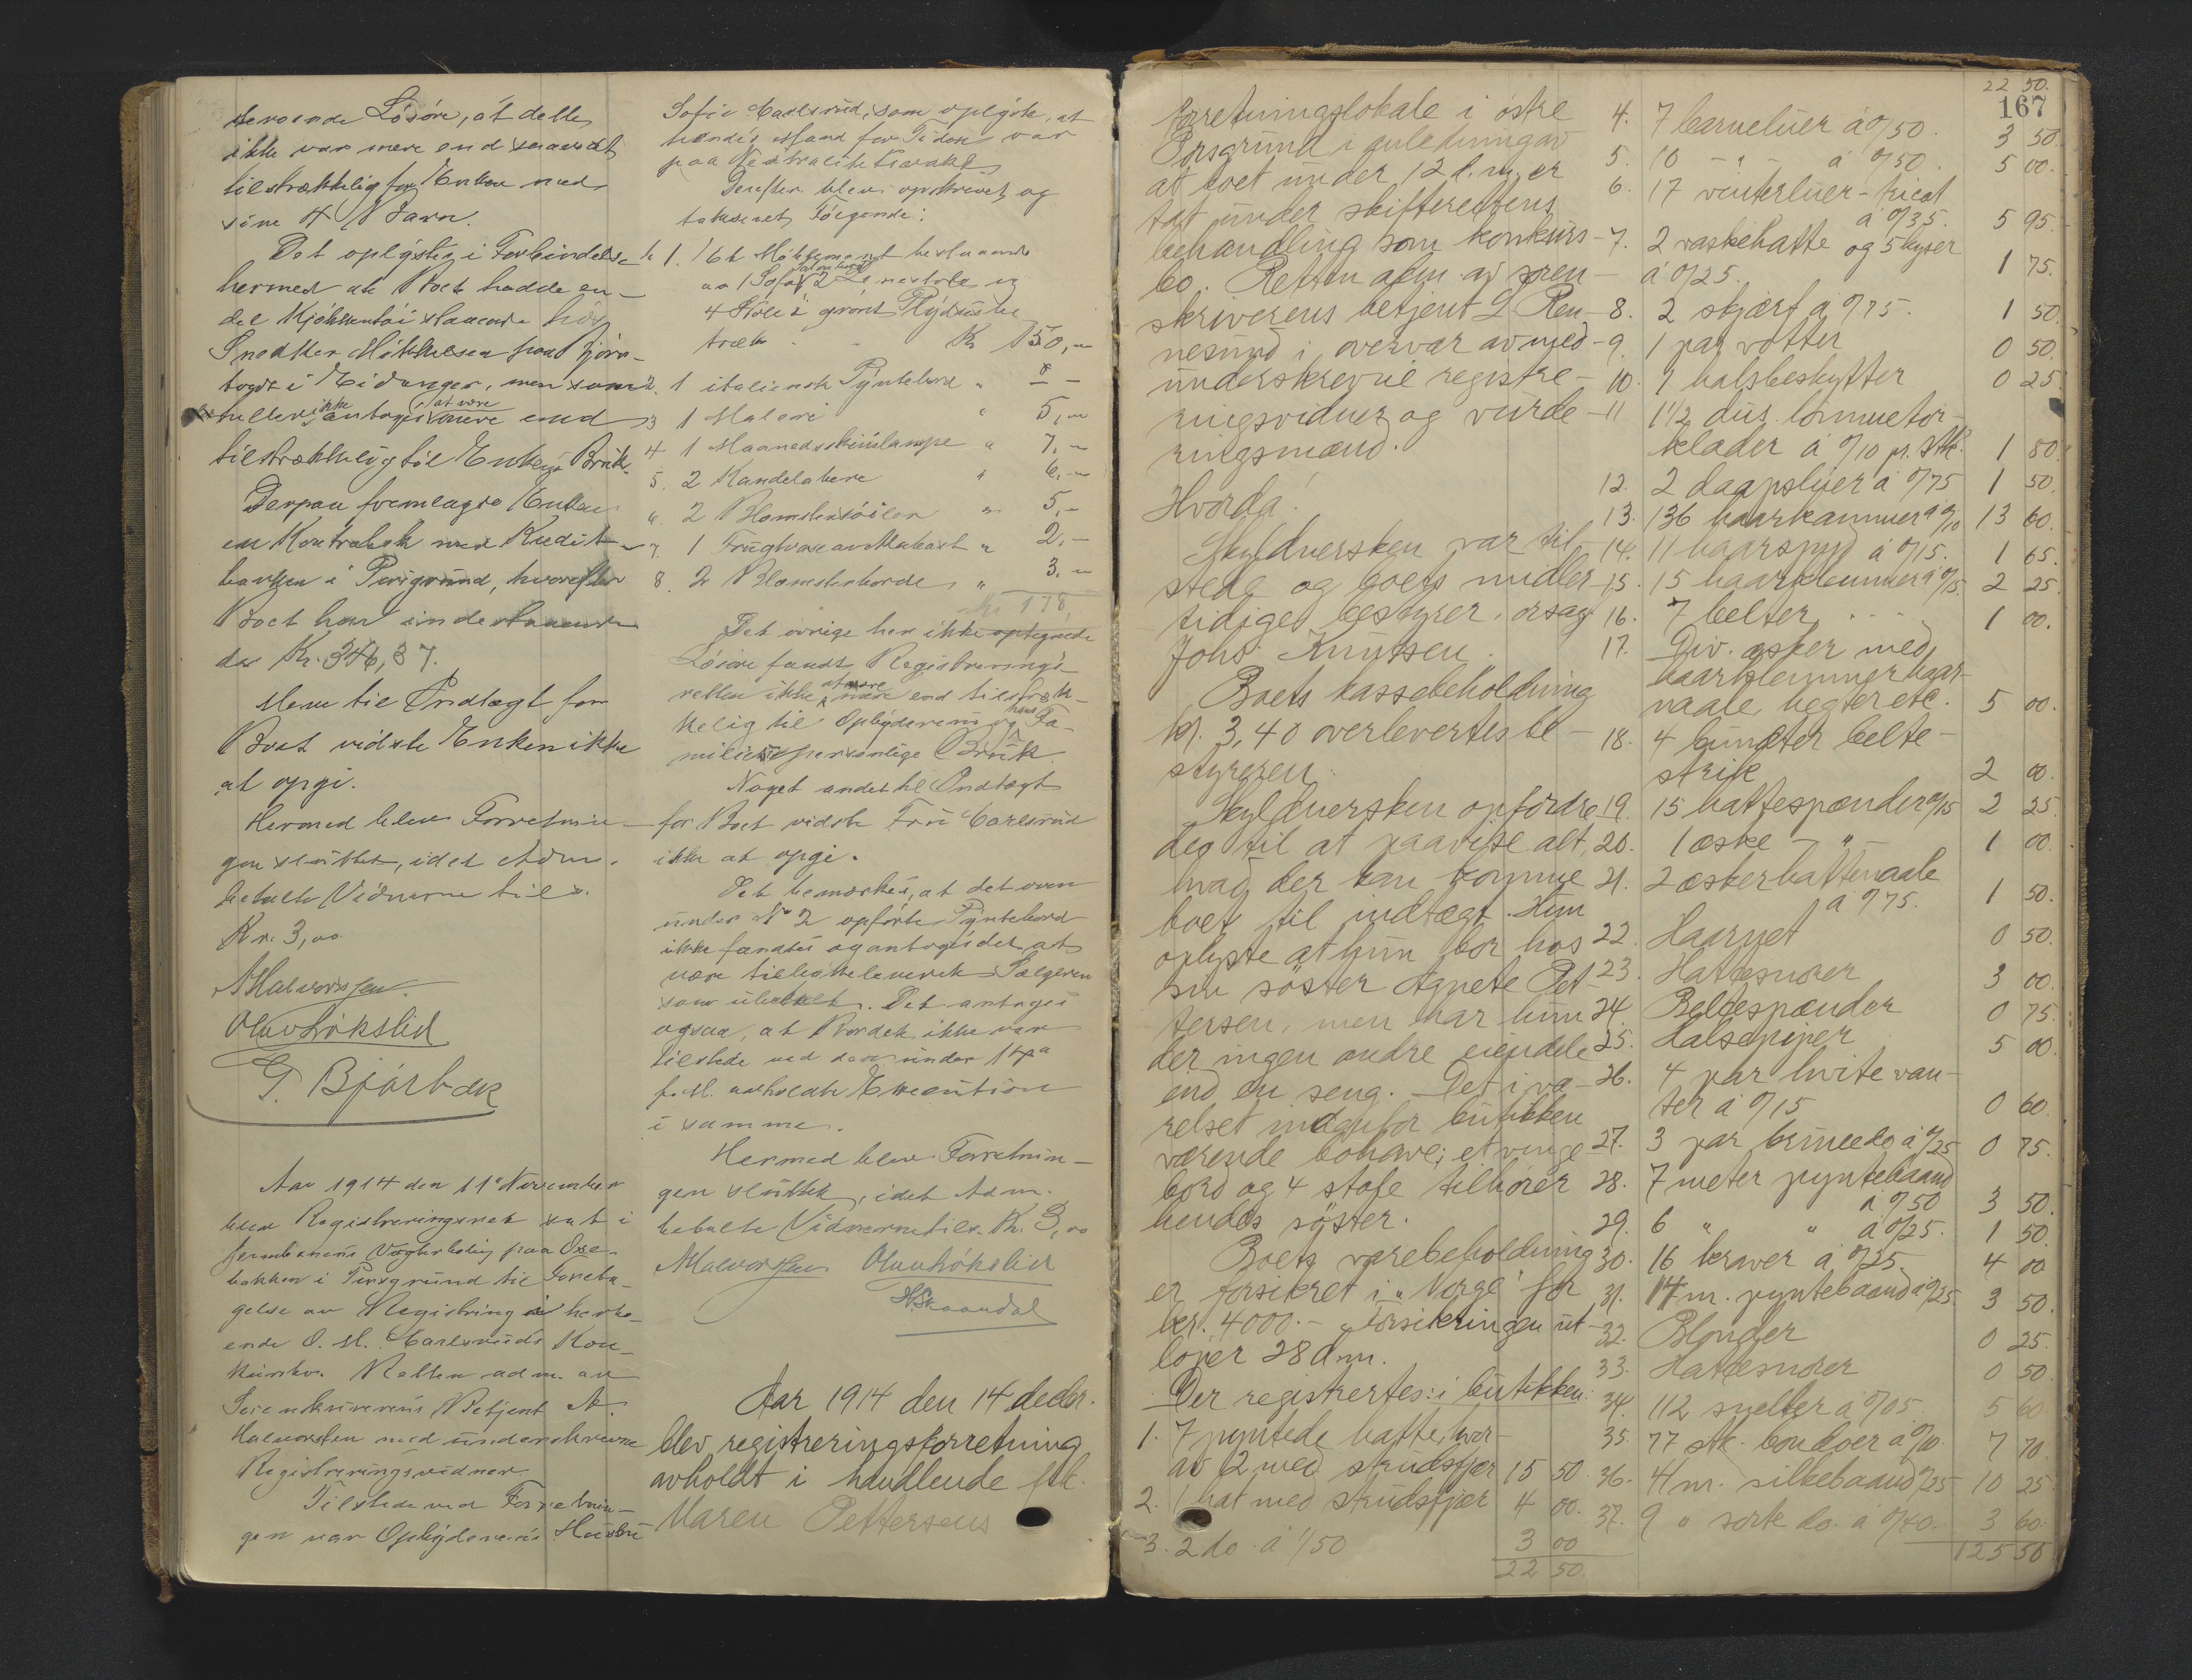 værende Løsøre, at dette
ikke var mere end
tilstrækkelig for Enken med
sine 4 Barn.
Det oplystes i Forbindelse
hermed at Boet hadde en
del staaende hos
Snedker Mikkelsen paa
i Eidanger, men som
heller ikke antoges at være mere end
tilstrækkelig til Enkens Bruk.
Derpaa fremlagde Enken
en Kontrabok med Kredit-
banken i Porsgrund, hvorefter
Boet har indestaaende
der Kr. 346,87.
Mere til Indtægt for
Boet vidste Enken ikke
at opgi.
Hermed blev Forretnin-
gen sluttet, idet Adm.
betalte Vidnerne tils.
Kr. 3,00
AHalvorsen
Olav Løkslid
G. Bjørbæk
Aar 1914 den 11te November
blev Registreringsret sat i
Jernbanens Vogterbolig paa Øxe-
bakken i Porsgrund til Foreta-
gelse av Registrering i herhø-
ende O. M. Carlsruds Kon-
kursbo. Retten adm. av
Sorenskriverens Betjent A.
Halvorsen med underskrevne
Registreringsvidner.
Tilstede ved Forretnin-
gen var Opbyderens Hustru
Sofie Carlsrud, som oplyste, at
hendes Mand for Tiden var
paa Nøitralitetsvakt.
Derefter blev opskrevet og
taksert Følgende:
1. 1 Et Møblement bestaaende
av 1 Sofa, 2 Lenestole og
4 Stole i grønt Plydsbe
træk Kr 150,-
2. 1 italiensk Pyntebord "
3 1 Maleri " 5,-
4 1 Maaneskinslampe " 7,-
5. 2 Kandelabere " 6,-
6. 2 Blomstersøiler " 5,-
7. 1 Frugtvase av Alabast " 2,-
8. 2 Blomsterborde " 3,-
Kr 178,
Det øvrige her ikke optegnede
Løsøre fandt Registrerings
retten ikke at være mere end tilstræk-
kelig til Opbyderens og hans Fa-
milies personlige Bruk.
Noget andet til Indtægt
for Boet vidste Fru Carlsrud
ikke at opgi.
Det bemerkes, at det oven
under No 2 opførte Pyntebord
ikke fandtes og antoges det at
være tilbakeleveret Sælgeren
som ubetalt. Det antoges
ogsaa, at Bordet ikke var
tilstede ved den under 14de
f. M. avholdte Execution
i samme.
Hermed blev Forretnin-
gen sluttet, idet Adm.
betalte Vidnerne tils. Kr. 3,00
AHalvorsen Olav Løkslid
H. Skaardal
Aar 1914 den 14 decbr.
blev registreringsforretning
avholdt i handlende frk.
Maren Pettersens
167
forretningslokale i østre
Porsgrund i anledning av
at boet under 12 d.m. er
tat under skifterettens
behandling som konkurs-
bo. Retten adm. av soren-
skriverens betjent L. Ren-
nesund i overvær av med-
underskrevne registre-
ringsvidner og vurde-
ringsmænd.
Hvorda:
Skyldnersken var til-
stede og boets midler-
tidige bestyrer, orsagf.
Johs. Knutsen.
Boets kassebeholdning
kr. 3,40 overlevertes be-
styreren.
Skyldnersken opfordre-
des til at paavise alt,
hvad der kan komme
boet til indtægt. Hun
oplyste at hun bor hos
sin søster Agnete Pet-
tersen, men har hun
der ingen andre eiendele
end en seng. Det i væ-
relset indenfor butikken
værende bohave; et vinge
bord og 4 stole tilhører
hendes søster.
Boets varebeholdning
er forsikret i "Norge" for
kr. 4000.- Forsikringen ut-
løper 28 d.m.
Der registrertes: i butikken:
1. 7 pyntede hatte, hvor-
av 2 med strudsfjær 15 50.
2. 1 hat med strudsfjær 4 00.
3. 2 do. á 1/50 3 00
22 50.
22 50.
4. 7 barneluer á 0/50. 3 50
5. 10 - " - á 0/50. 5 00.
6. 17 vinterluer - tricot
á 0/35. 5 95.
7. 2 vaskehatte og 5 kyser
á 0/25. 1 75.
8. 2 skjærf á 0/75. 1 50.
9. 1 par votter 0 50.
10. 1 halsbeskytter 0 25.
11 1 1/2 dus. lommetør-
klæder á 0/10 pr. stk. 1 80.
12. 2 daapsluer á 0/75 1 50.
13. 136 haarkammer á 0/10 13 60.
14. 11 haarspyd á 0/15. 1 65.
15. 15 haarklemmer á 0/15. 2 25.
16. 7 belter 1 00.
17. Div. æsker med
haarklemmer haar-
naale, hegter etc. 5 00.
18. 4 bundter belte-
strik 2 00.
19. 15 hattespænder á 0/15 2 25.
20. 1 æske - " - 1 00.
21. 2 æsker hattenaale
á 0/75. 1 50.
22. Haarnet 0 50.
23. Hattesnorer 3 00.
24. Beltespænder 0 75.
25. Halspiper 5 00.
26. 4 par hvite van-
ter á 0/15 0 60.
27. 3 par brune do á 0/25 0 75.
28. 7 meter pyntebaand
á 0/50 3 50.
29. 6 " " á 0/25. 1 50.
30. 16 kraver á 0/25 4 00
31. 14 m. pyntebaand á 0/25 3 50.
32. Blonder 0 25.
33. Hattesnorer 0 50.
34. 112 sneller á 0/05. 5 60.
35. 77 stk. bondoer á 0/10. 7 70.
36. 41 m. silkebaand 0/25 10 25
37. 9 " sorte do. á 0/40. 3 60.
125 50